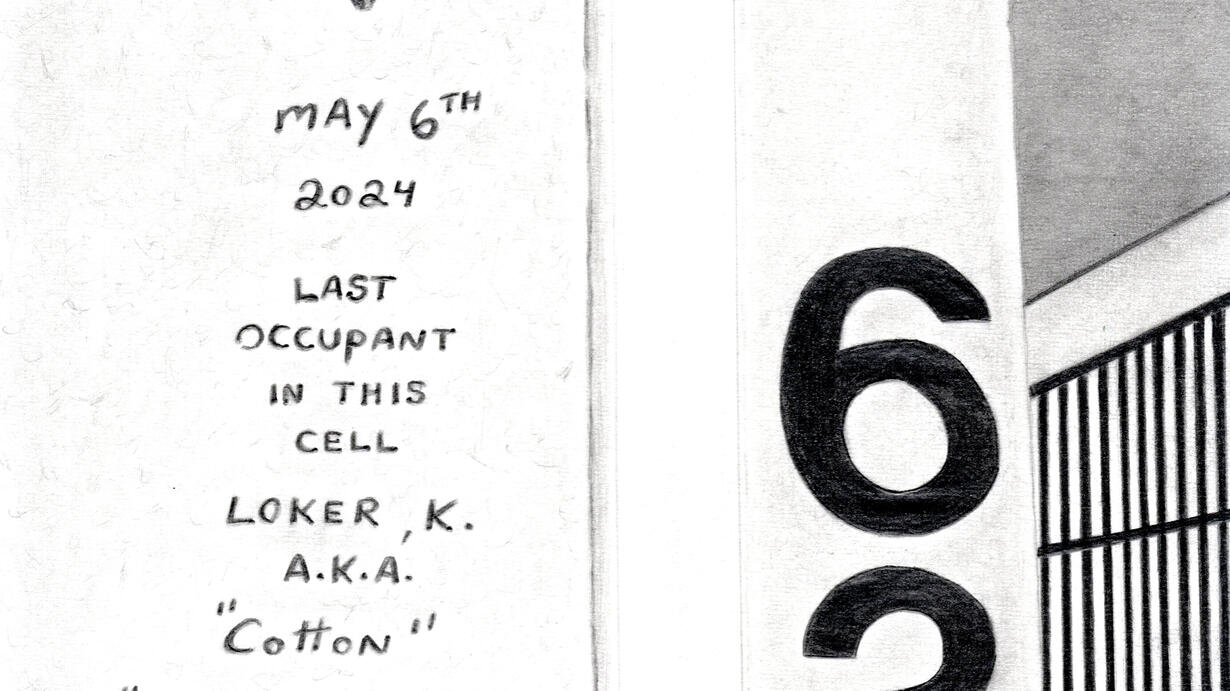 MAY 6TH
2024
LAST
OCCUPANT
IN THIS
CELL
LOKER, K.
A.K.A.
"Cotton"
6